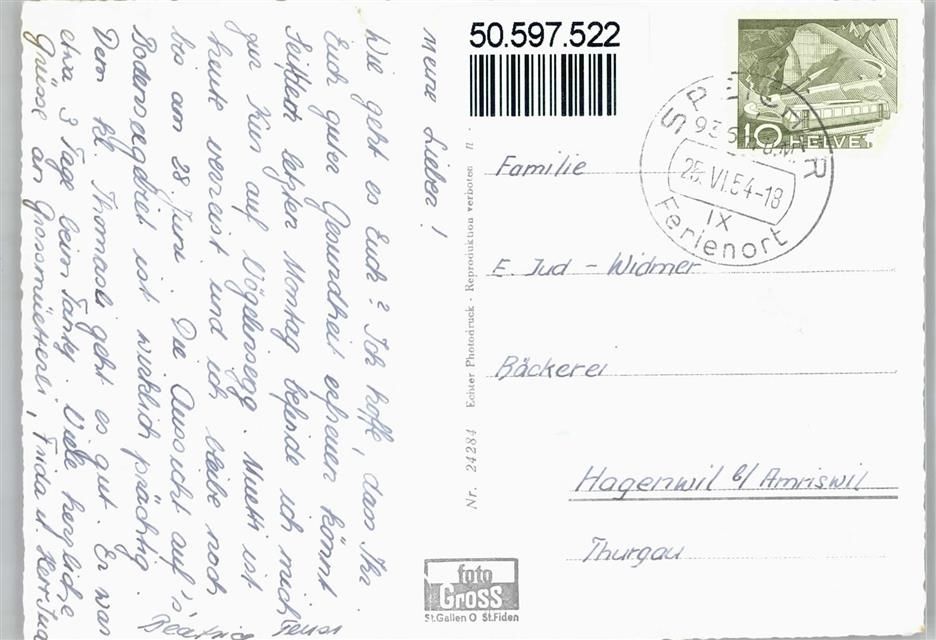 Meine Lieben!
Wie geht es Euch? Ich hoffe, dass Ihr
Euch guter Gesundheit erfreuen könnt.
Seit dem letzten Montag befinde ich mich
zur Kur auf Vögelinsegg. Mutti ist
heute verreist und ich bleibe noch
bis am 28. Juni. Die Aussicht auf's
Bodenseegebiet ist wirklich prächtig.
Dem kl. Thomasli geht es gut. Er war
etwa 3 Tage beim Fanty. Viele herzliche
Grüsse an Grossmüetterli, Frida u. Herr Jud
Beatrice
50.597.522
10 HELVETIA
SPEICHER
25.VI.54-18
IX
Ferienort
Familie
E. Jud - Widmer
Bäckerei
Hagenwil b/ Amriswil
Thurgau
Nr. 24284 Echter Photodruck - Reproduktion verboten
foto
GROSS
St.Gallen O St.Fiden